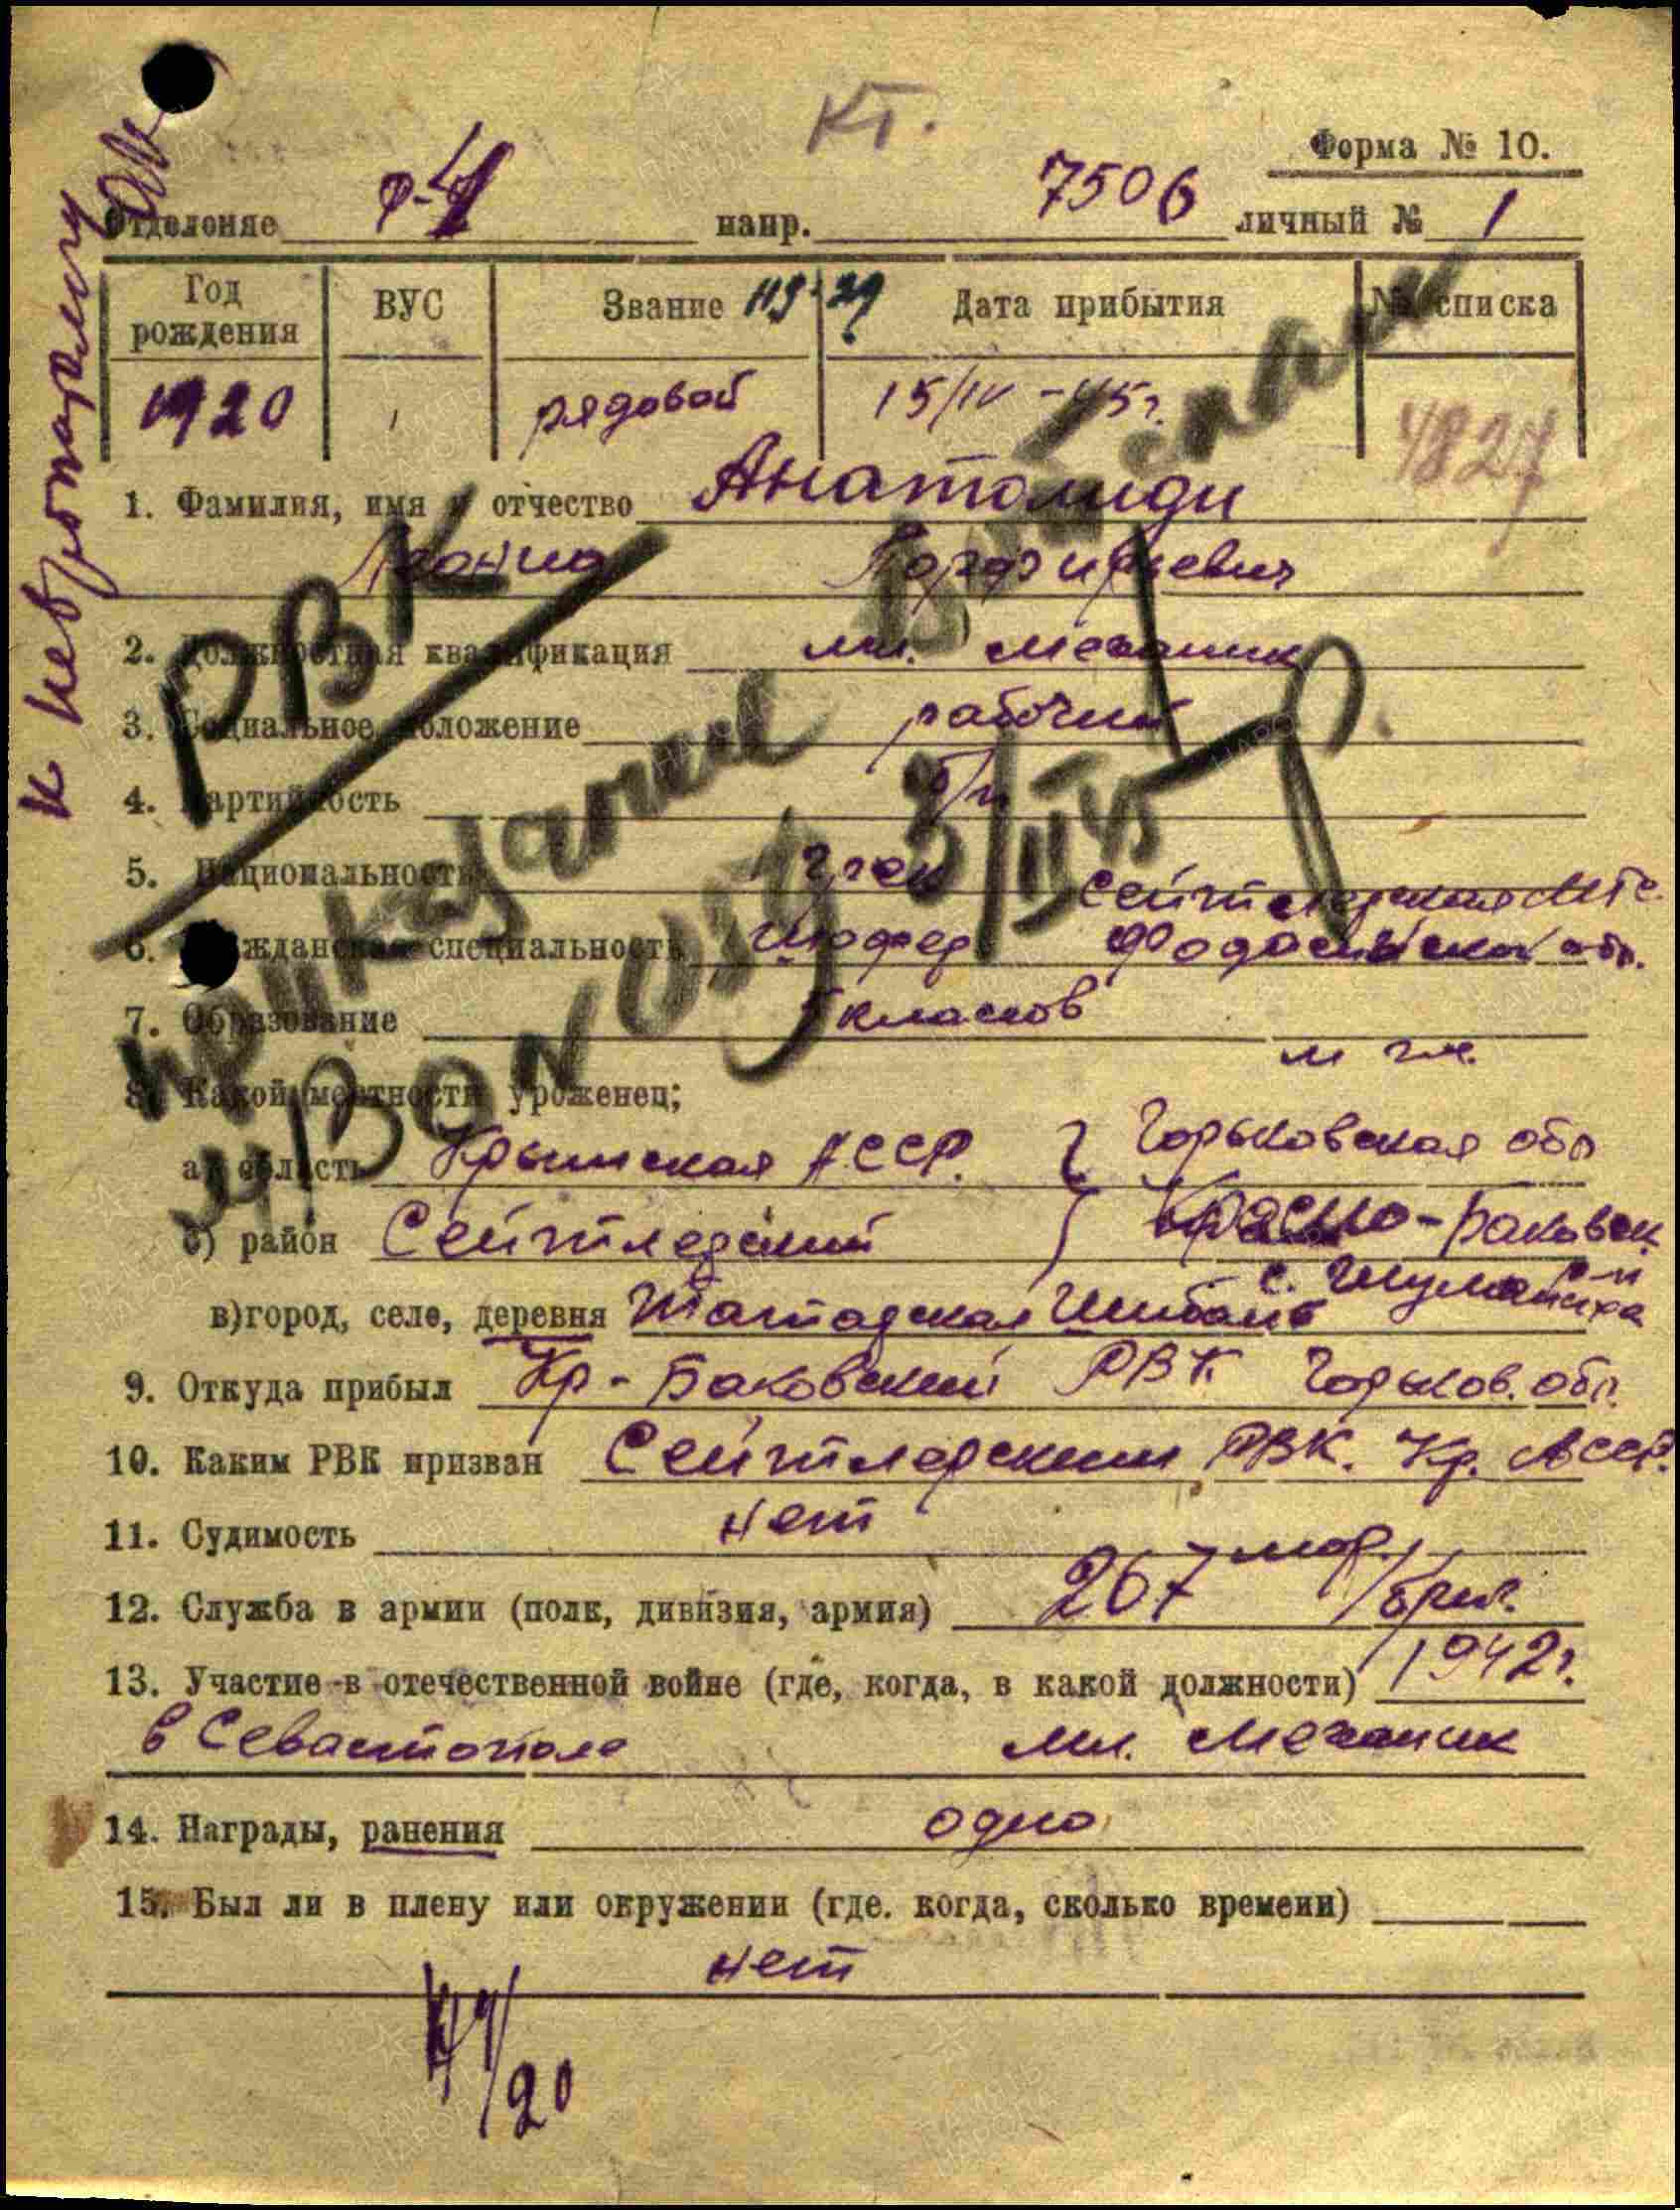 Кт.
Форма № 10.
Отделение р-4 напр. 7506 личный № 1
Год рождения ВУС Звание Дата прибытия № списка
1920 рядовой 15/IV-45г. 4827
1. Фамилия, имя и отчество Анатолиди
Леонид Порфирьевич
2. Должностная квалификация мл. механик
3. Социальное положение рабочий
4. Партийность б/п
5. Национальность грек
Сейтлерская МТС.
6. Гражданская специальность Шофер
7. Образование 5 классов
м ж.
8. Какой местности уроженец;
а) область Крымская АССР. Горьковская обл
б) район Сейтлерский Красно-Баковск.
р-н
в) город, село, деревня Шибань с.
9. Откуда прибыл Кр-Баковский РВК Горьков. обл.
10. Каким РВК призван Сейтлерским РВК. Кр. АССР.
11. Судимость нет
12. Служба в армии (полк, дивизия, армия) 267 мор. бриг.
13. Участие в отечественной войне (где, когда, в какой должности) 1942г.
в Севастополе мл. механик
14. Награды, ранения одно
15. Был ли в плену или окружении (где. когда, сколько времени)
нет
РВК
20